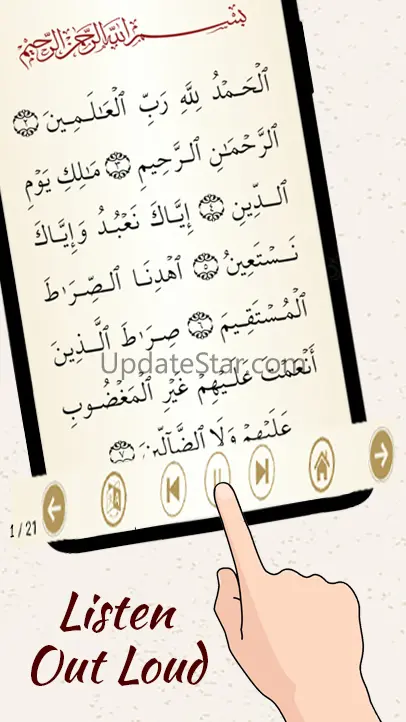 بِسْمِ اللَّهِ الرَّحْمَٰنِ الرَّحِيمِ
ٱلْحَمْدُ لِلَّهِ رَبِّ ٱلْعَٰلَمِينَ ٢
ٱلرَّحْمَٰنِ ٱلرَّحِيمِ ٣ مَٰلِكِ يَوْمِ
ٱلدِّينِ ٤ إِيَّاكَ نَعْبُدُ وَإِيَّاكَ
نَسْتَعِينُ ٥ ٱهْدِنَا ٱلصِّرَٰطَ
ٱلْمُسْتَقِيمَ ٦ صِرَٰطَ ٱلَّذِينَ
UpdateStar.com
أَنْعَمْتَ عَلَيْهِمْ غَيْرِ ٱلْمَغْضُوبِ
عَلَيْهِمْ وَلَا ٱلضَّآلِّينَ ٧
1 / 21
Listen
Out Loud